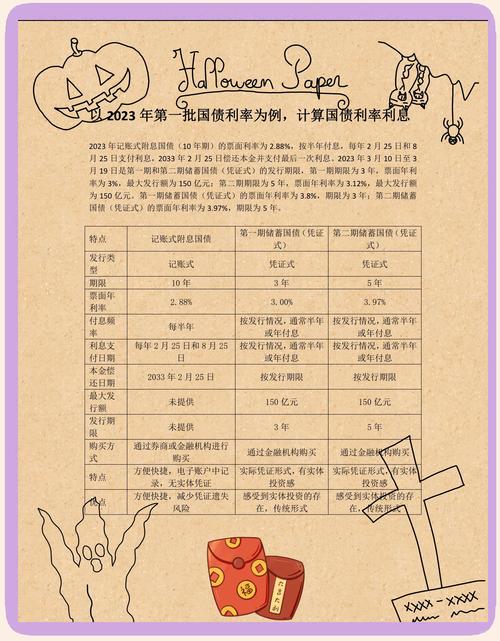 Halloween Paper
以 2023 年第一批国债利率为例，计算国债利率利息
2023 年记账式附息国债（10 年期）的票面利率为 2.88%，按半年付息，每年 2 月 25 日和 8
月 25 日支付利息，2033 年 2 月 25 日偿还本金并支付最后一次利息。2023 年 3 月 10 日至 3
月 19 日是第一期和第二期储蓄国债（凭证式）的发行期限，第一期期限为 3 年，票面年利
率为 3%，最大发行额为 150 亿元；第二期期限为 5 年，票面年利率为 3.12%，最大发行额
为 150 亿元。第一期储蓄国债（凭证式）的票面年利率为 3.8%，期限为 3 年；第二期储蓄
国债（凭证式）的票面年利率为 3.97%，期限为 5 年。
特点 记账式附息国债 第一期储蓄国债（凭证式） 第二期储蓄国债（凭证式）
发行类型 记账式 凭证式 凭证式
期限 10 年 3 年 5 年
票面年利率 2.88% 3.00% 3.97%
付息频率 每半年 按发行情况，通常半年或年付息 按发行情况，通常半年或年付息
利息支付日期 每年 2 月 25 日和 8 月 25 日 按发行情况，通常半年或年付息 按发行情况，通常半年或年付息
本金偿还日期 2033 年 2 月 25 日 按发行期限 按发行期限
最大发行额 未提供 150 亿元 150 亿元
发行期限 未提供 3 年 5 年
购买方式 通过券商或金融机构进行购买 通过金融机构购买 通过金融机构购买
特点 方便快捷，电子账户中记录，无实体凭证 实际凭证形式，有实体投资感 实际凭证形式，有实体投资感
优点 方便快捷，减少凭证遗失风险 感受到实体投资的存在，传统形式 感受到实体投资的存在，传统形式
福
大吉大利
XXXX - XXXX